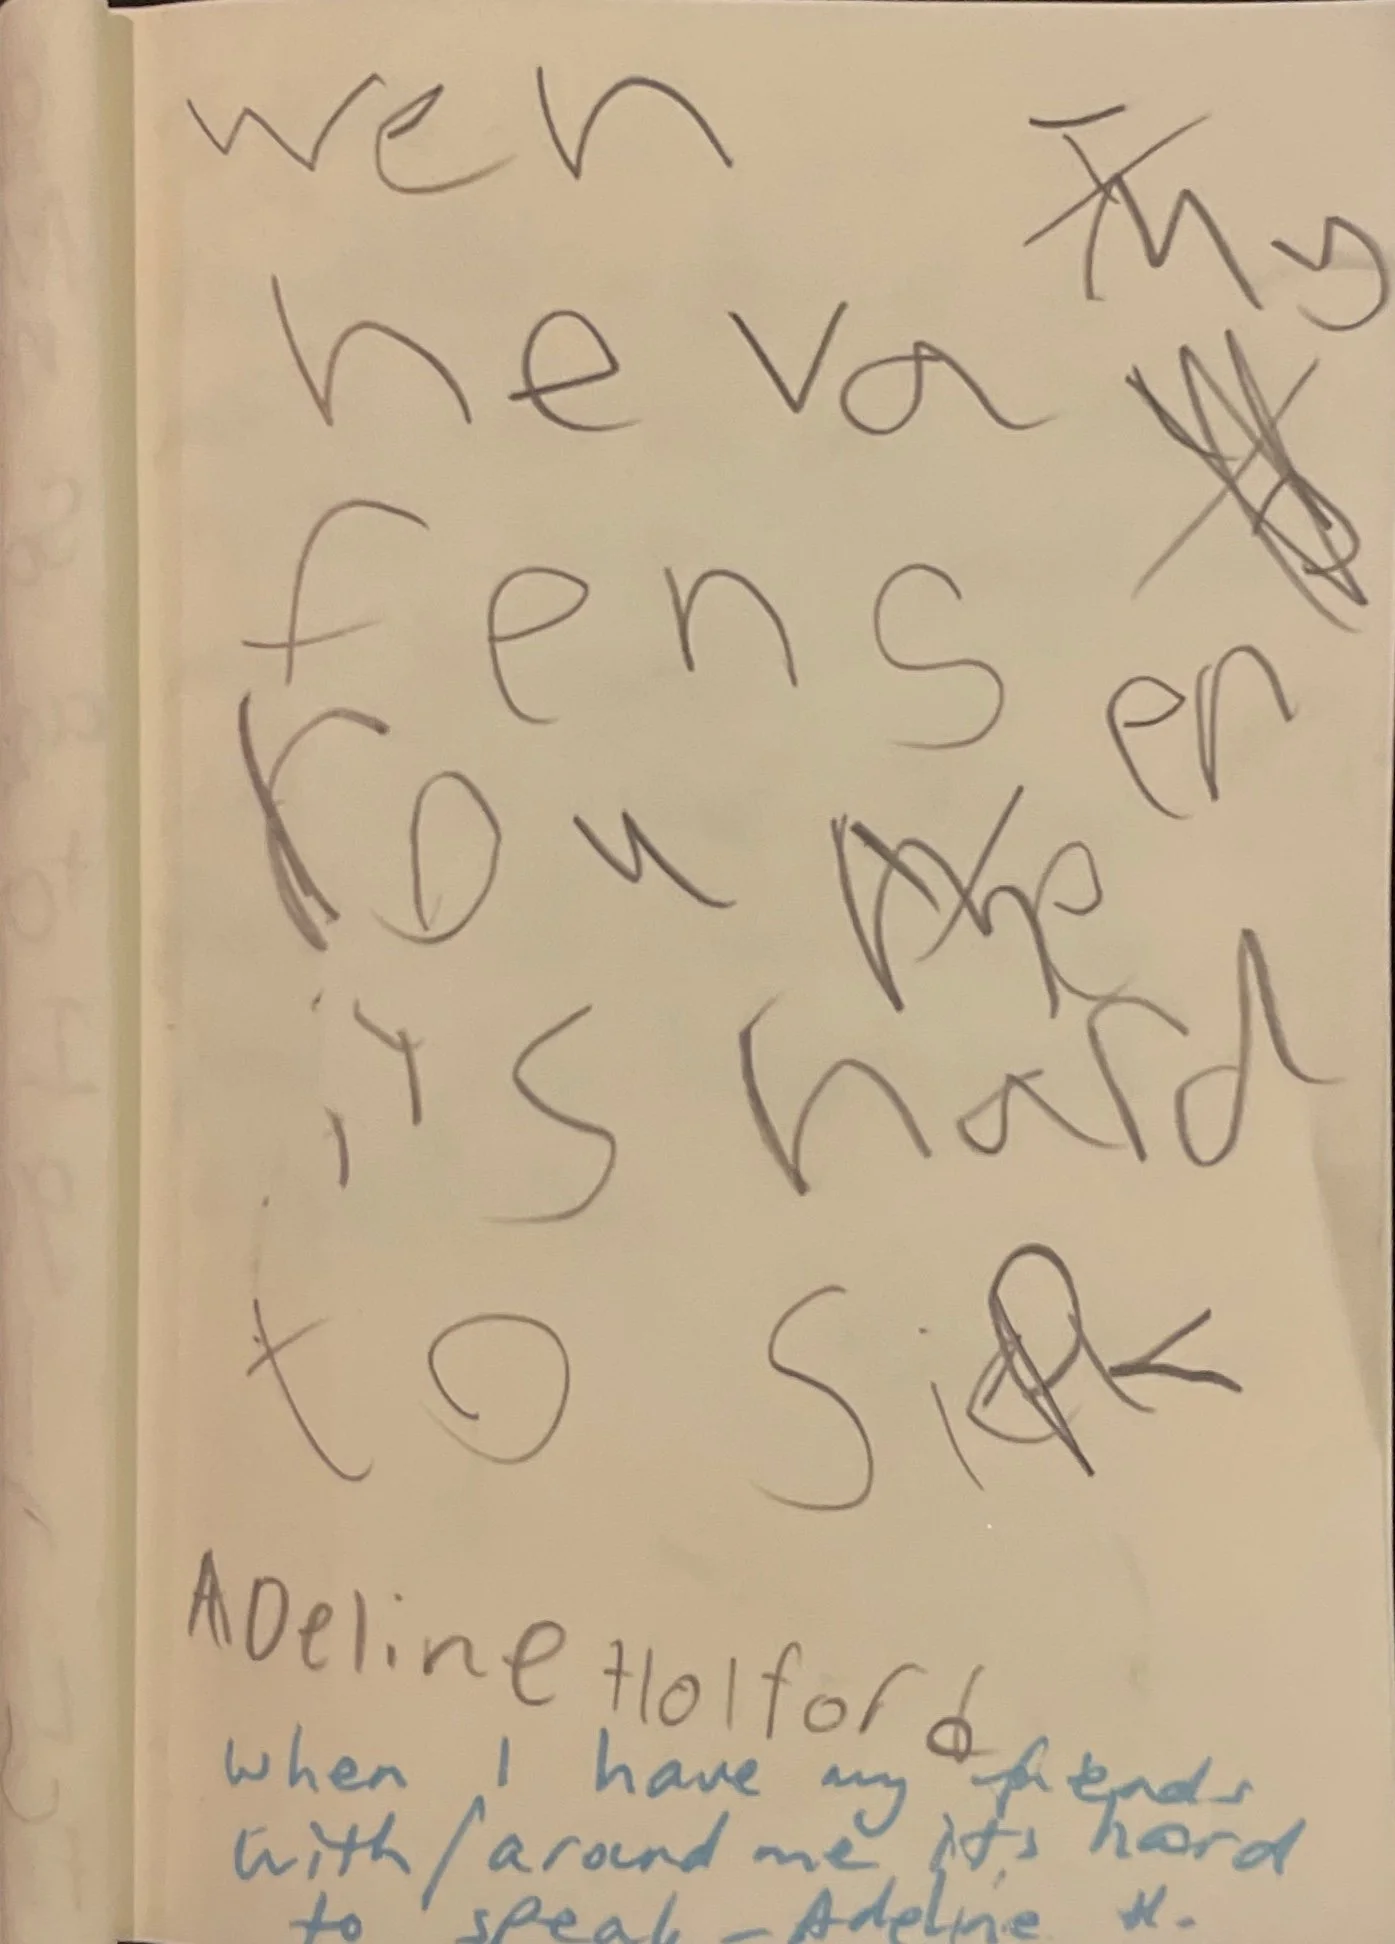 wen
my
heva
fens
en
rou me
it's hard
to sipk
ADeline Holford
when I have my friends
with/around me it's hard
to speak - Adeline H.